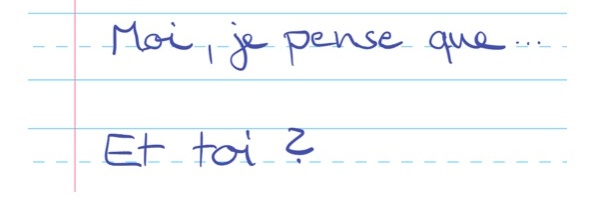 Moi, je pense que...
Et toi ?